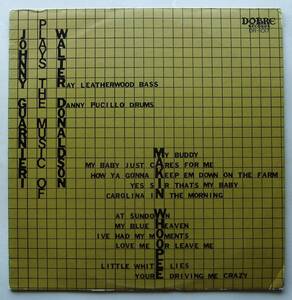 DOBRE
RECORDS
DR-1017
JOHNNY GUARNIERI
PLAYS THE MUSIC OF
WALTER DONALDSON
RAY LEATHERWOOD BASS
DANNY PUCILLO DRUMS
MAKIN WHOOPEE
MY BUDDY
MY BABY JUST CARES FOR ME
HOW YA GONNA KEEP EM DOWN ON THE FARM
YES SIR THATS MY BABY
CAROLINA IN THE MORNING
AT SUNDOWN
MY BLUE HEAVEN
IVE HAD MY MOMENTS
LOVE ME OR LEAVE ME
LITTLE WHITE LIES
YOURE DRIVING ME CRAZY